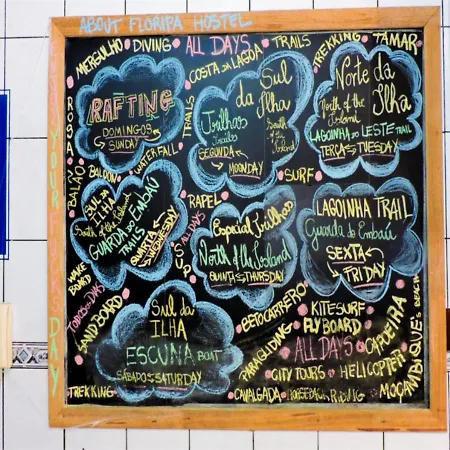 ABOUT FLORIPA HOSTEL
MERGULHO
DIVING
ALL DAYS
TRAILS
TREKKING
TAMAR
COSTA DA LAGOA
RAFTING
DOMINGOS
SUNDAY
TRAILS
WATERFALL
Sul
da
Ilha
Trilhas
Trails
South of
the
Island
SEGUNDA
MOONDAY
Norte da
Ilha
North of the
Island
LAGOINHA DO LESTE TRAIL
TERÇA TUESDAY
BALÃO
BALOON
SURF
SUL DA
ILHA
South of the Island
GUARDA DO EMBAÚ
TRAILS
QUARTA
WEDNESDAY
RAPEL
ALL DAYS
SUP
Especial Trilhas
North of the Iesland
QUINTA THURSDAY
LAGOINHA TRAIL
Guarda do Embaú
SEXTA
FRIDAY
WAKE
BOARD
TODOS OS DIAS
SANDBOARD
Sul da
ILHA
ESCUNA BOAT
SÁBADO SATURDAY
TREKKING
BETOCARRERO
KITESURF
FLYBOARD
PARAGLIDING
ALL DAYS
CAPOEIRA
CITY TOURS
HELICOPTER
MOÇAMBIQUE'S BEACH
CAVALGADA
HORSEBACK RIDING